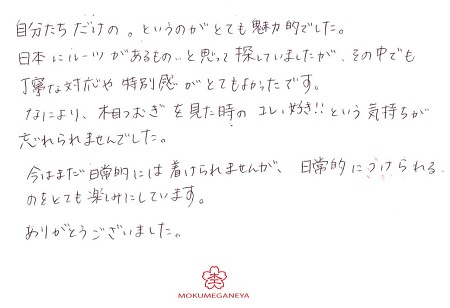 自分たちだけの。というのがとても魅力的でした。
日本にルーツがあるもの..と思って探していましたが、その中でも
丁寧な対応や特別感がとてもよかったです。
なにより、木目つむぎを見た時のコレ好き!!という気持ちが
忘れられませんでした。
今はまだ日常的には着けられませんが、日常的につけられる
のをとても楽しみにしています。
ありがとうございました。
MOKUMEGANEYA